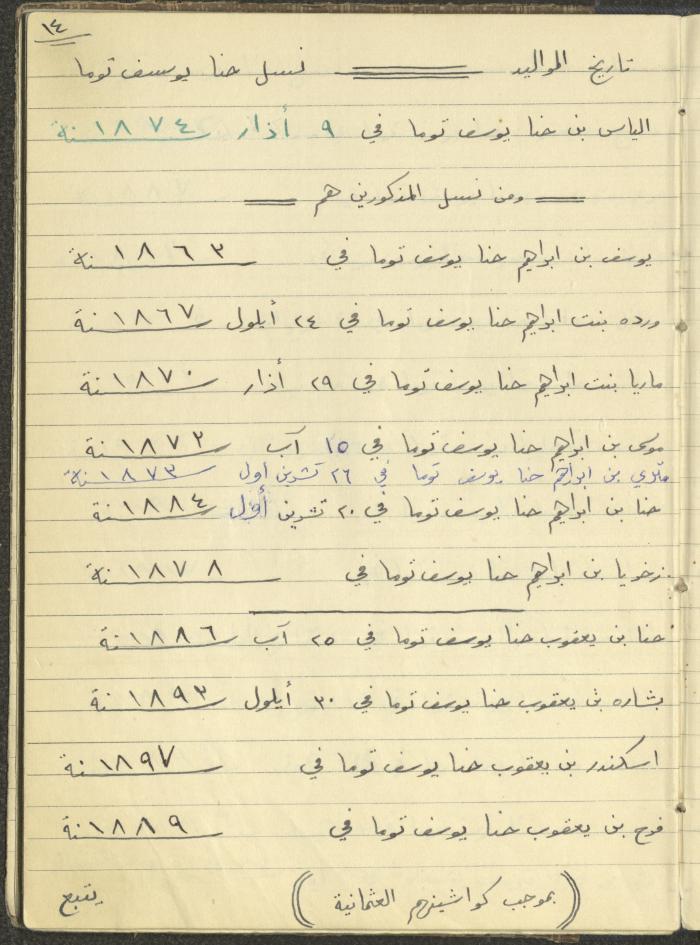 ١٤
تاريخ المواليد ═══ نسل حنا يوسف توما
الياس بن حنا يوسف توما في ٩ أذار سنة ١٨٧٤
== ومن نسل المذكورين هم ==
يوسف بن ابراهيم حنا يوسف توما في سنة ١٨٦٣
ورده بنت ابراهيم حنا يوسف توما في ٢٤ أيلول سنة ١٨٦٧
ماريا بنت ابراهيم حنا يوسف توما في ٢٩ أذار سنة ١٨٧٠
موسى بن ابراهيم حنا يوسف توما في ١٥ آب سنة ١٨٧٣
بن ابراهيم حنا يوسف توما في ٢٦ تشرين اول سنة ١٨٧٣
حنا بن ابراهيم حنا يوسف توما في ٢٠ تشرين أول سنة ١٨٨٤
زخريا بن ابراهيم حنا يوسف توما في سنة ١٨٧٨
حنا بن يعقوب حنا يوسف توما في ٢٥ آب سنة ١٨٨٦
بشاره بن يعقوب حنا يوسف توما في ٣٠ أيلول سنة ١٨٩٣
اسكندر بن يعقوب حنا يوسف توما في سنة ١٨٩٧
فرح بن يعقوب حنا يوسف توما في سنة ١٨٨٩
(بموجب كواشينهم العثمانية) يتبع